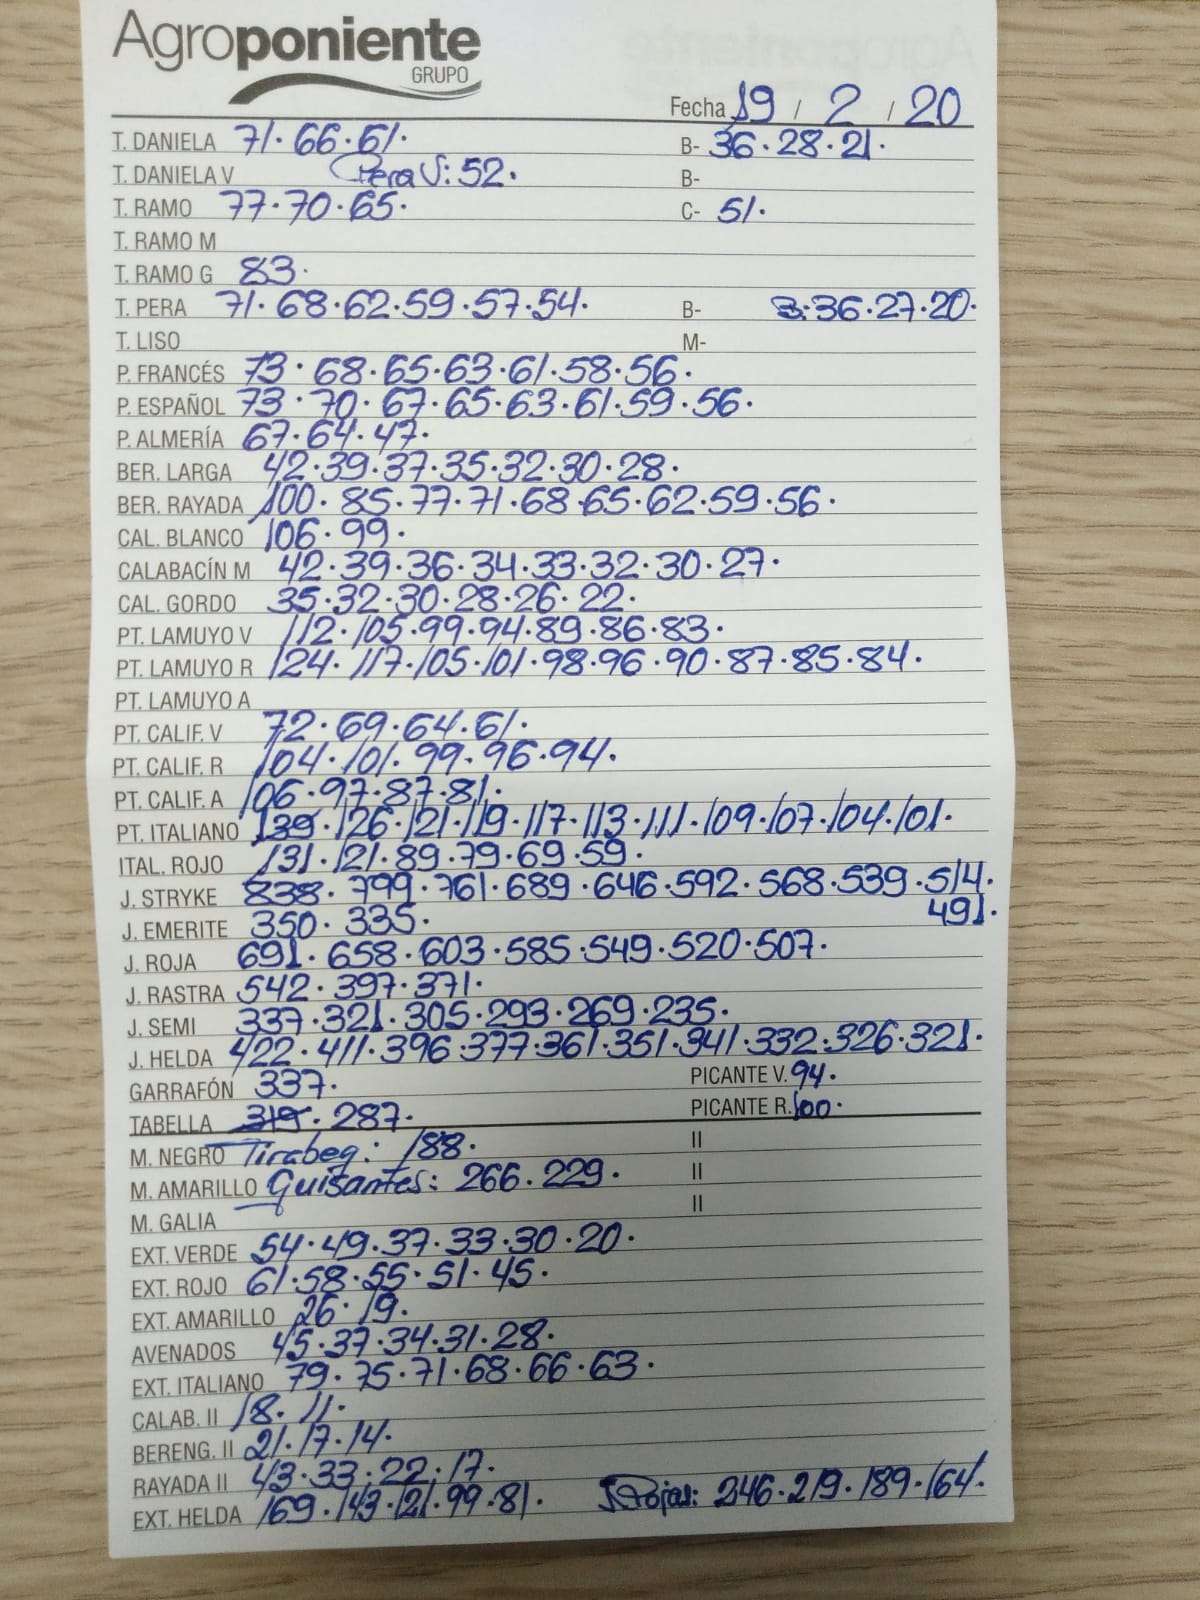 Agroponiente
GRUPO
Fecha 19 / 2 / 20
T. DANIELA 71. 66. 61. B- 36. 28. 21.
T. DANIELA V Pera V: 52. B-
T. RAMO 77. 70. 65. C- 51.
T. RAMO M
T. RAMO G 83.
T. PERA 71. 68. 62. 59. 57. 54. B- 3: 36. 27. 20.
T. LISO M-
P. FRANCÉS 73. 68. 65. 63. 61. 58. 56.
P. ESPAÑOL 73. 70. 67. 65. 63. 61. 59. 56.
P. ALMERÍA 67. 64. 47.
BER. LARGA 42. 39. 37. 35. 32. 30. 28.
BER. RAYADA 100. 85. 77. 71. 68. 65. 62. 59. 56.
CAL. BLANCO 106. 99.
CALABACÍN M 42. 39. 36. 34. 33. 32. 30. 27.
CAL. GORDO 35. 32. 30. 28. 26. 22.
PT. LAMUYO V 112. 105. 99. 94. 89. 86. 83.
PT. LAMUYO R 124. 117. 105. 101. 98. 96. 90. 87. 85. 84.
PT. LAMUYO A
PT. CALIF. V 72. 69. 64. 61.
PT. CALIF. R 104. 101. 99. 96. 94.
PT. CALIF. A 106. 97. 87. 81.
PT. ITALIANO 139. 126. 121. 119. 117. 113. 111. 109. 107. 104. 101.
ITAL. ROJO 131. 121. 89. 79. 69. 59.
J. STRYKE 838. 799. 761. 689. 646. 592. 568. 539. 514.
491.
J. EMERITE 350. 335.
J. ROJA 691. 658. 603. 585. 549. 520. 507.
J. RASTRA 542. 397. 371.
J. SEMI 337. 321. 305. 293. 269. 235.
J. HELDA 422. 411. 396. 377. 361. 351. 341. 332. 326. 321.
GARRAFÓN 337. PICANTE V. 94.
TABELLA 319. 287. PICANTE R. 100.
M. NEGRO Tirabeq: 188. II
M. AMARILLO Guisantes: 266. 229. II
M. GALIA II
EXT. VERDE 54. 49. 37. 33. 30. 20.
EXT. ROJO 61. 58. 55. 51. 45.
EXT. AMARILLO 26. 19.
AVENADOS 45. 37. 34. 31. 28.
EXT. ITALIANO 79. 75. 71. 68. 66. 63.
CALAB. II 18. 11.
BERENG. II 21. 17. 14.
RAYADA II 43. 33. 22. 17.
EXT. HELDA 169. 143. 121. 99. 81. 246. 219. 189. 164.